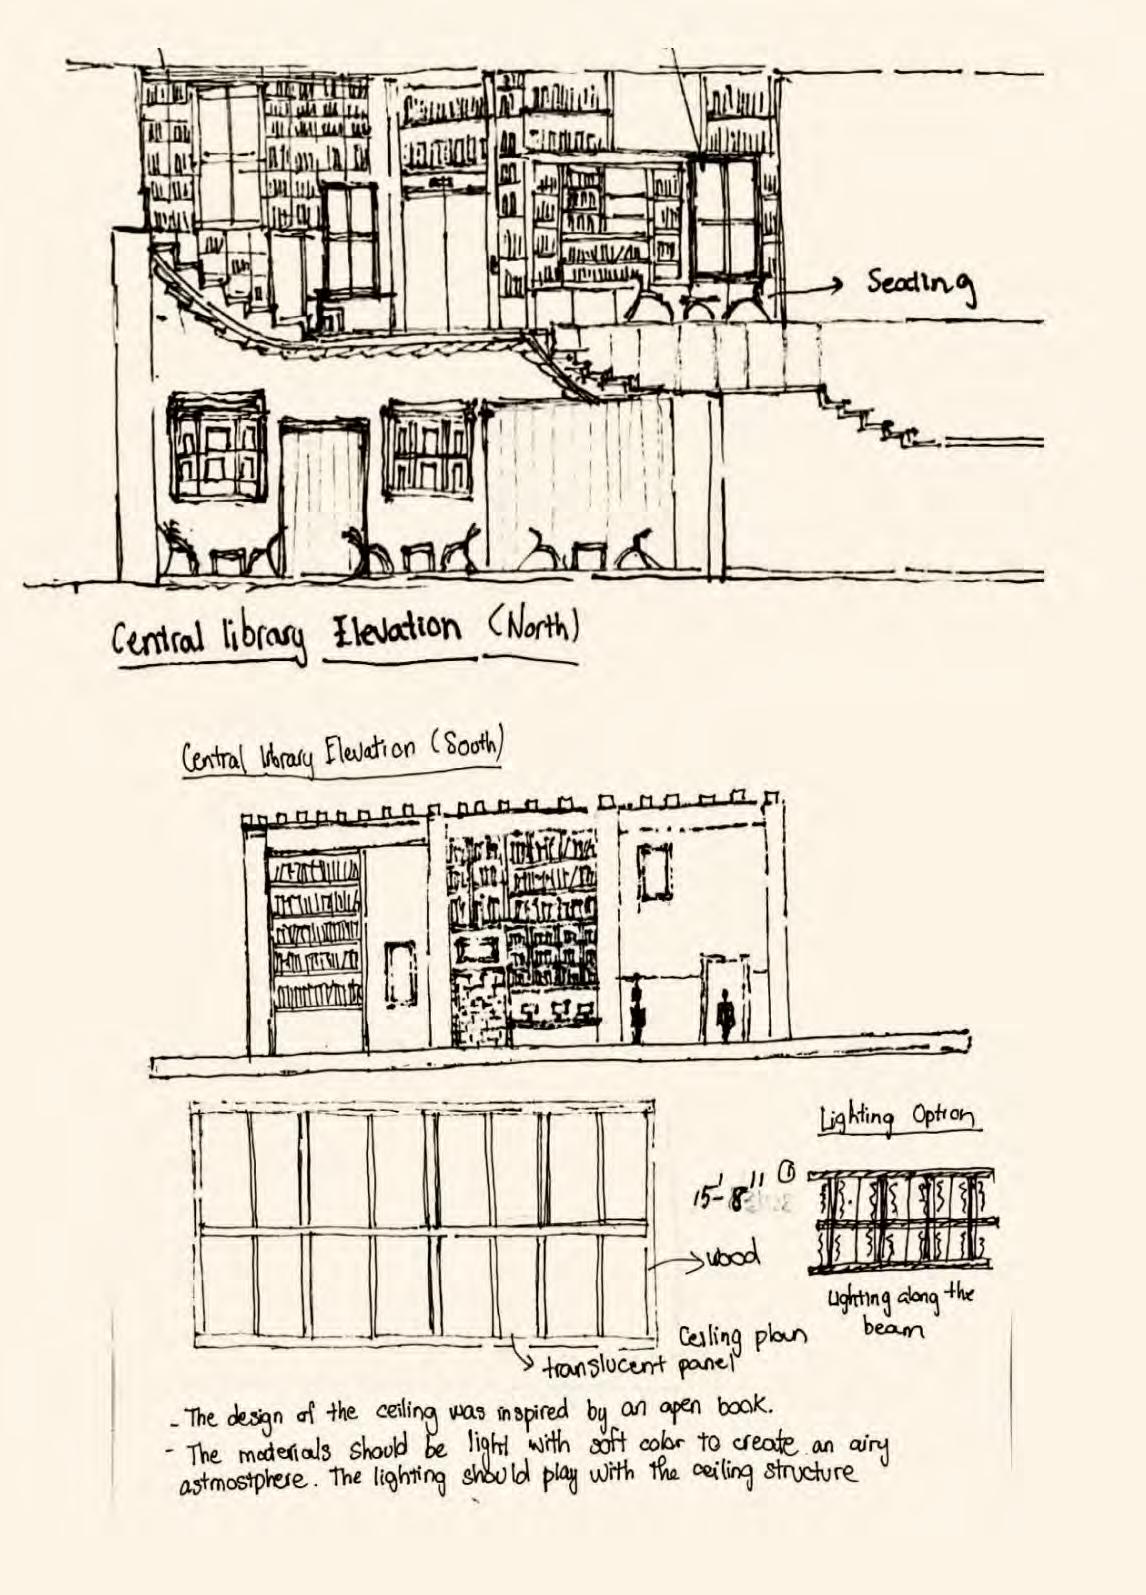 Seading
Central library Elevation (North)
Central library Elevation (South)
Lighting Option
15'-8" ①
wood
Lighting along the
beam
Ceiling plan
translucent panel
- The design of the ceiling was inspired by an open book.
- The materials should be light with soft color to create an airy
astmostphere. The lighting should play with the ceiling structure